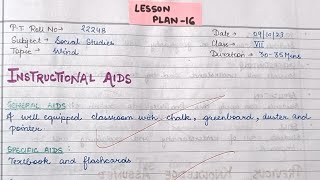 LESSON
PLAN-16
P.T. Roll No → 22248
Date → 04/10/23
Subject → Social Studies
Class → VII
Topic → Wind
Duration → 30-35 Mins
INSTRUCTIONAL AIDS
GENERAL AIDS:
A well equipped classroom with chalk, greenboard, duster and
pointer.
SPECIFIC AIDS:
Textbook and flashcards